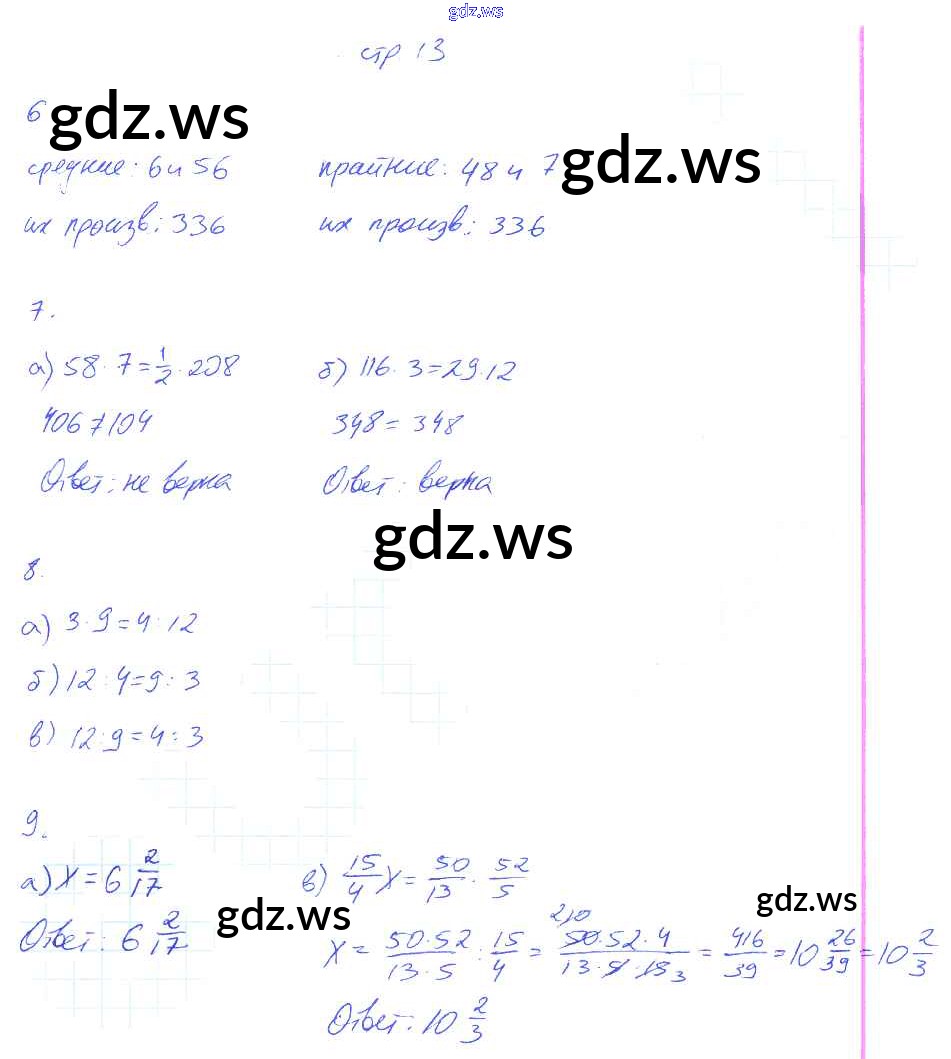 gdz.ws
стр 13
6 gdz.ws
средние: 6 и 56 крайние: 48 и 7 gdz.ws
их произв: 336 их произв: 336
7.
а) 58 · 7 = 1/2 · 208 б) 116 · 3 = 29 · 12
406 ≠ 104 348 = 348
Ответ: не верна Ответ: верна
gdz.ws
8.
а) 3 · 9 = 4 : 12
б) 12 : 4 = 9 : 3
в) 12 : 9 = 4 : 3
9.
а) X = 6 2/17 в) 15/4 X = 50/13 · 52/5
Ответ: 6 2/17 gdz.ws gdz.ws
X = 50·52/13·5 : 15/4 = 50·52·4/13·5·15 3 = 416/39 = 10 26/39 = 10 2/3
Ответ: 10 2/3